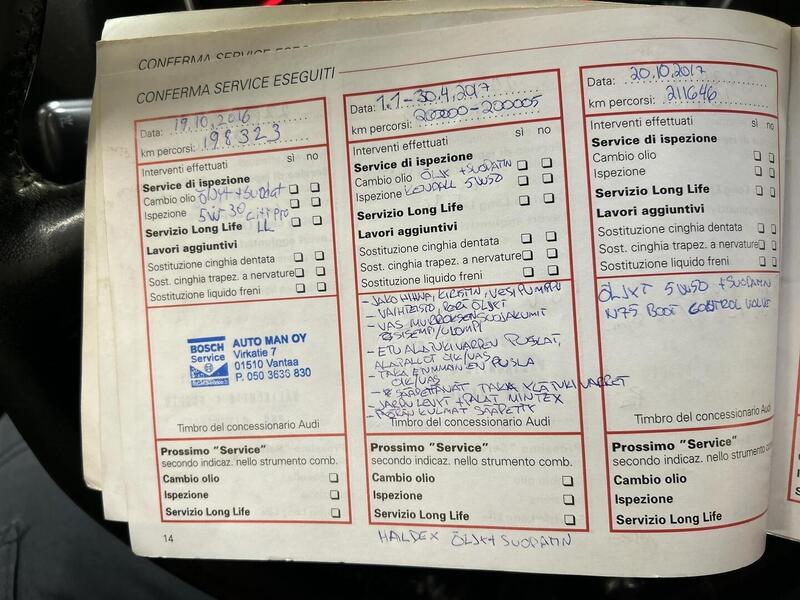 CONFERMA SERVICE ESEGUITI
Data: 19.10.2016
km percorsi: 198323
Interventi effettuati
sì no
Service di ispezione
Cambio olio ÖLJYT + SUODAT
Ispezione 5W-30
Servizio Long Life LL
Lavori aggiuntivi
Sostituzione cinghia dentata
Sost. cinghia trapez. a nervature
Sostituzione liquido freni
BOSCH
Service
AUTO MAN OY
Virkatie 7
01510 Vantaa
P. 050 3633 830
Timbro del concessionario Audi
Prossimo "Service"
secondo indicaz. nello strumento comb.
Cambio olio
Ispezione
Servizio Long Life
14
Data: 1.1-30.4.2017
km percorsi: 200000-200005
Interventi effettuati
sì no
Service di ispezione
Cambio olio ÖLJY + SUODATIN
Ispezione KENDALL 5W50
Servizio Long Life
Lavori aggiuntivi
Sostituzione cinghia dentata
Sost. cinghia trapez. a nervature
Sostituzione liquido freni
- JAKOHIHNA, KIRISTIN, VESIPUMPPU
- VAIHTEISTO, PERÄ ÖLJYT
- VAS MURROKSENSUOJAKUMIT
SISEMPI/ULOMPI
- ETU ALATUKIVARREN PUSLAT,
ALAPALLOT OIK/VAS
- TAKA EINMMAINEN PUSLA
OIK/VAS
- SÄÄDETTÄVÄT TAKA YLÄTUKIVARRET
- JARRULEVYT + PALAT MINTEX
- PYÖRÄN KULMAT SÄÄDETTY
Timbro del concessionario Audi
Prossimo "Service"
secondo indicaz. nello strumento comb.
Cambio olio
Ispezione
Servizio Long Life
HALDEX ÖLJY+SUODATIN
Data: 20.10.2017
km percorsi: 211646
Interventi effettuati
sì no
Service di ispezione
Cambio olio
Ispezione
Servizio Long Life
Lavori aggiuntivi
Sostituzione cinghia dentata
Sost. cinghia trapez. a nervature
Sostituzione liquido freni
ÖLJYT 5W50 + SUODATIN
N75 BOOT CONTROL VALVE
Timbro del concessionario Audi
Prossimo "Service"
secondo indicaz. nello strumento
Cambio olio
Ispezione
Servizio Long Life